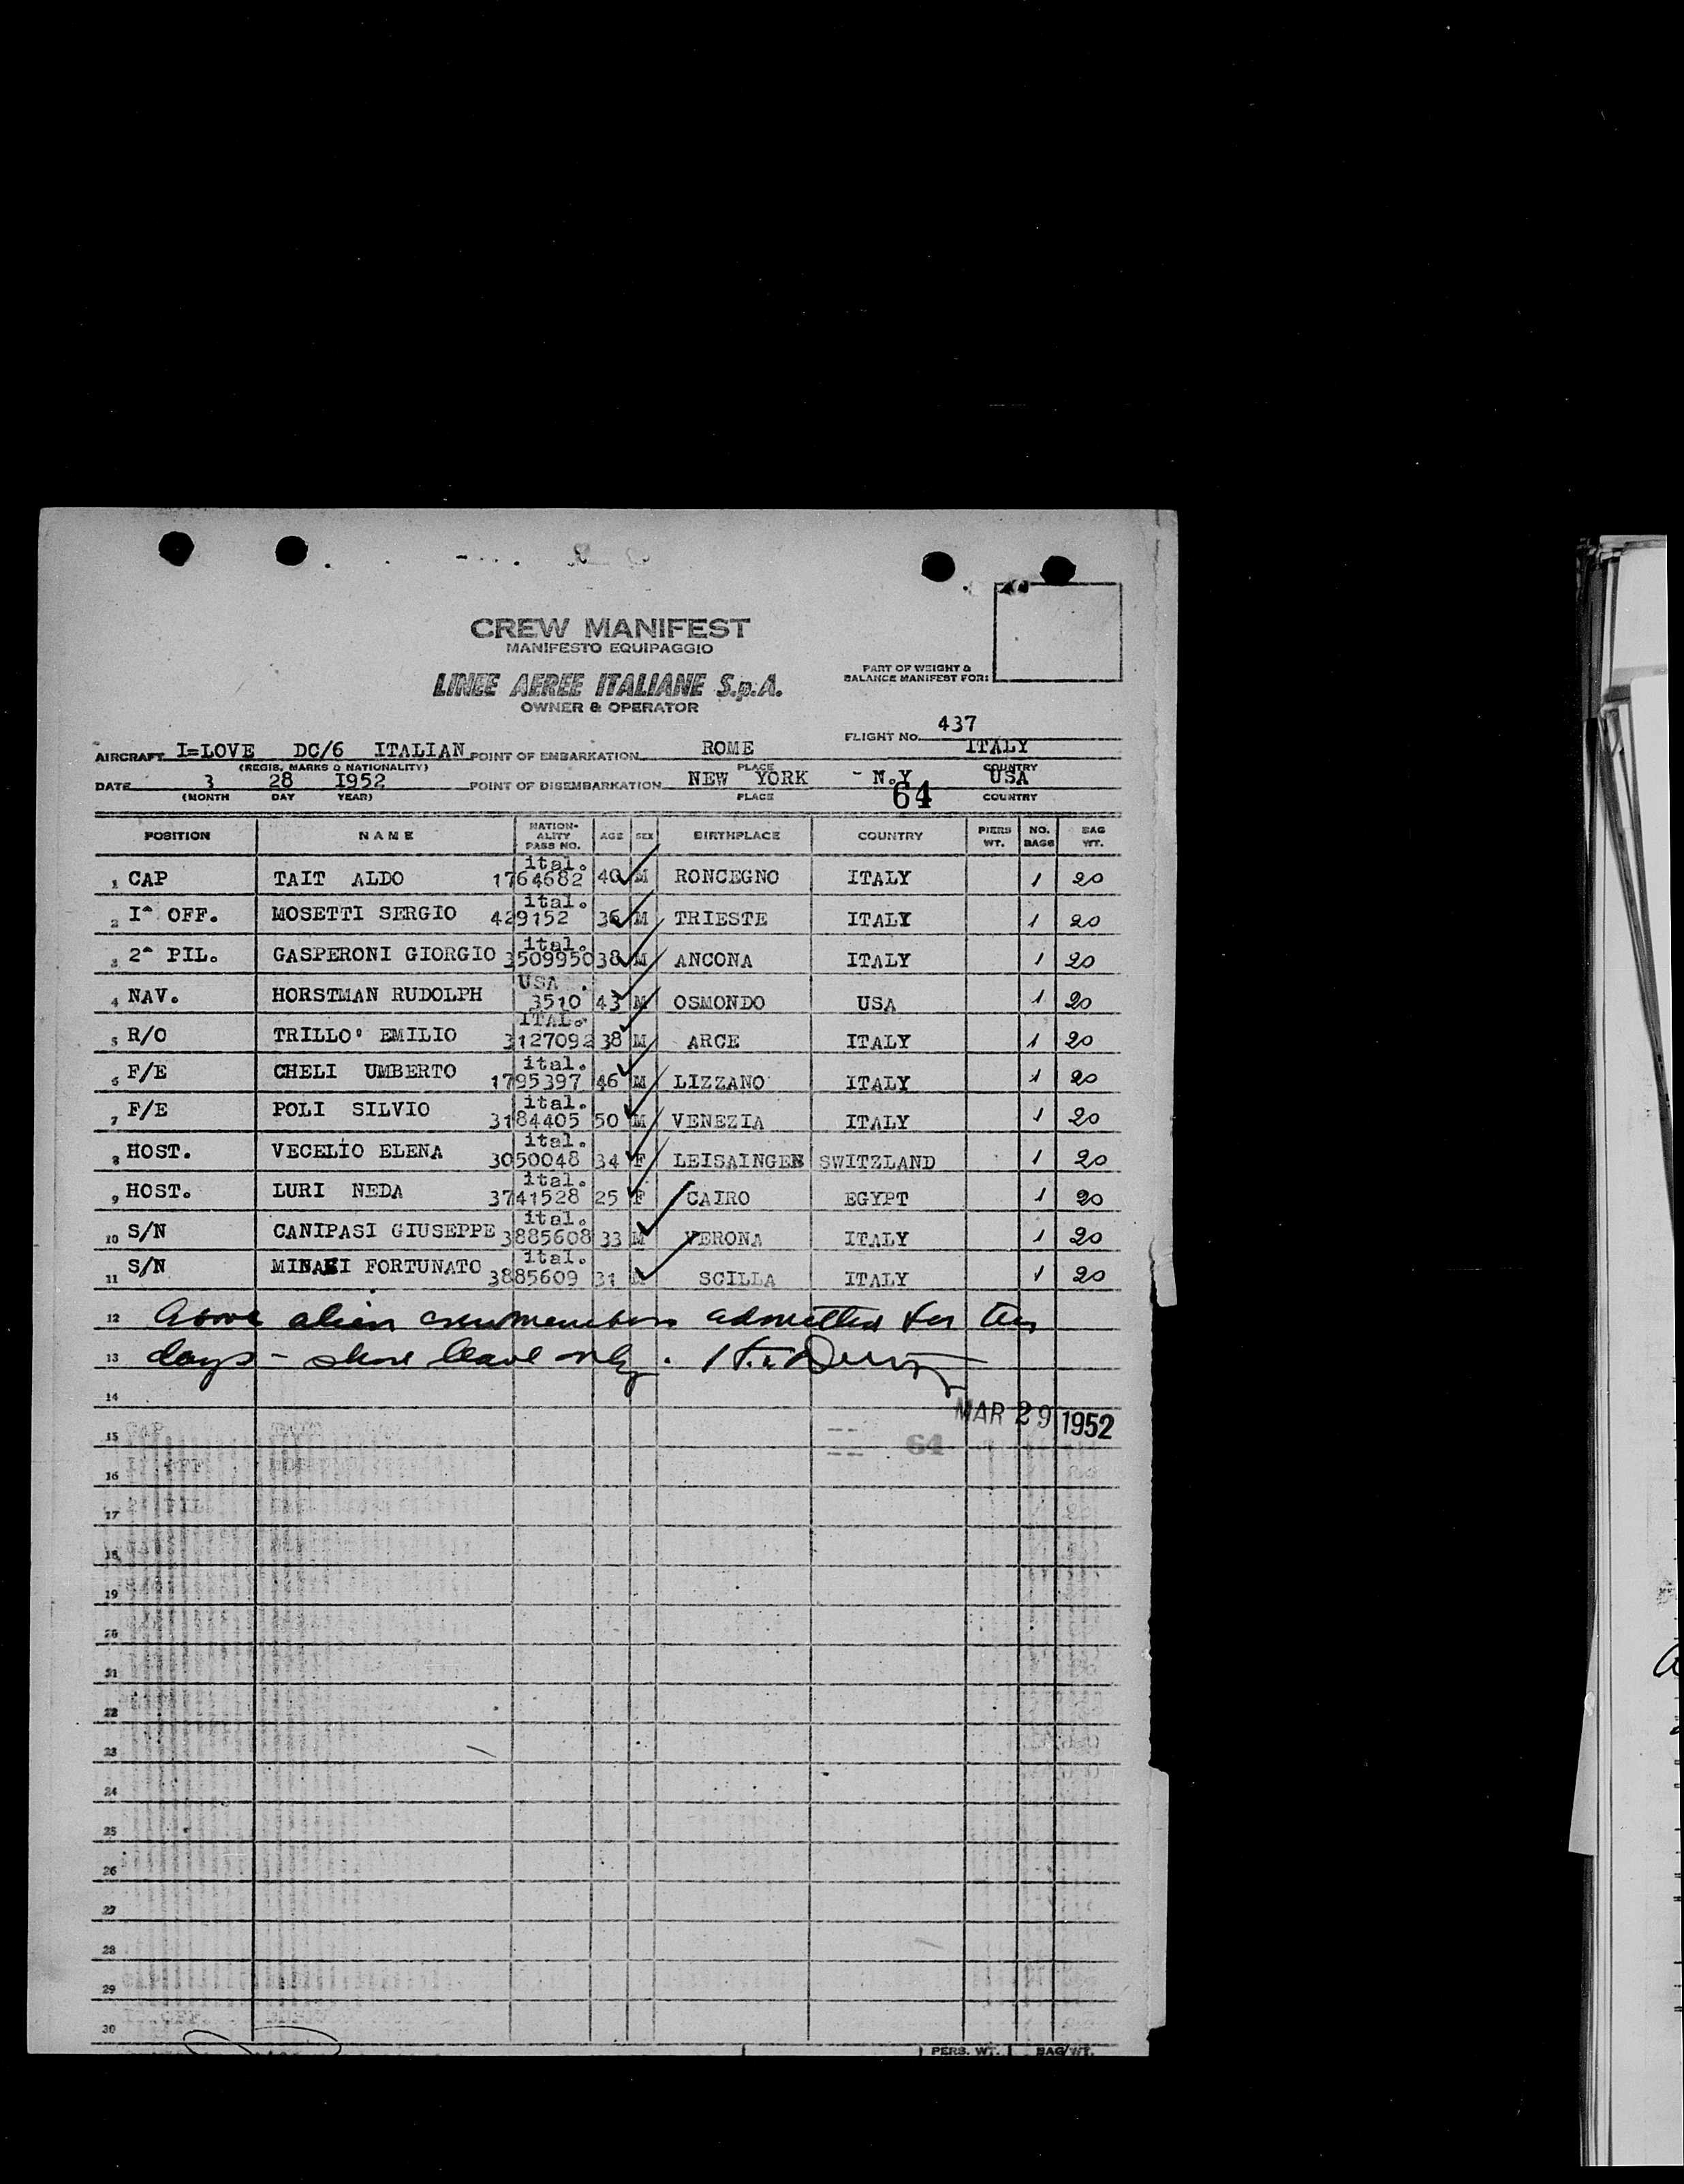 CREW MANIFEST
MANIFESTO EQUIPAGGIO
LINEE AEREE ITALIANE S.p.A.
OWNER & OPERATOR
PART OF WEIGHT &
BALANCE MANIFEST FOR:
FLIGHT No. 437
AIRCRAFT I=LOVE DC/6 ITALIAN POINT OF EMBARKATION ROME ITALY
(REGIS. MARKS & NATIONALITY) PLACE COUNTRY
DATE 3 28 I952 POINT OF DISEMBARKATION NEW YORK - N.Y USA
(MONTH DAY YEAR) PLACE 64 COUNTRY
POSITION NAME NATION-ALITY PASS NO. AGE SEX BIRTHPLACE COUNTRY PIERS WT. NO. BAGS BAG WT.
1 CAP TAIT ALDO ital. 1764682 40 M RONCEGNO ITALY 1 20
2 I^ OFF. MOSETTI SERGIO ital. 429152 36 M TRIESTE ITALY 1 20
3 2^ PIL. GASPERONI GIORGIO ital. 3509950 38 M ANCONA ITALY 1 20
4 NAV. HORSTMAN RUDOLPH USA . 3510 43 M OSMONDO USA 1 20
5 R/O TRILLO' EMILIO ITAL. 3127092 38 M ARCE ITALY 1 20
6 F/E CHELI UMBERTO ital. 1795397 46 M LIZZANO ITALY 1 20
7 F/E POLI SILVIO ital. 3184405 50 M VENEZIA ITALY 1 20
8 HOST. VECELIO ELENA ital. 3050048 34 F LEISAINGEN SWITZLAND 1 20
9 HOST. LURI NEDA ital. 3741528 25 F CAIRO EGYPT 1 20
10 S/N CANIPASI GIUSEPPE ital. 3885608 33 M VERONA ITALY 1 20
11 S/N FORTUNATO ital. 3885609 31 M SCILLA ITALY 1 20
12 Above alien crewmembers admitted for ten
13 days - shore leave only.
14
MAR 29 1952
15 64
16
17
18
19
20
21
22
23
24
25
26
27
28
29
30
PERS. WT. BAG/WT.